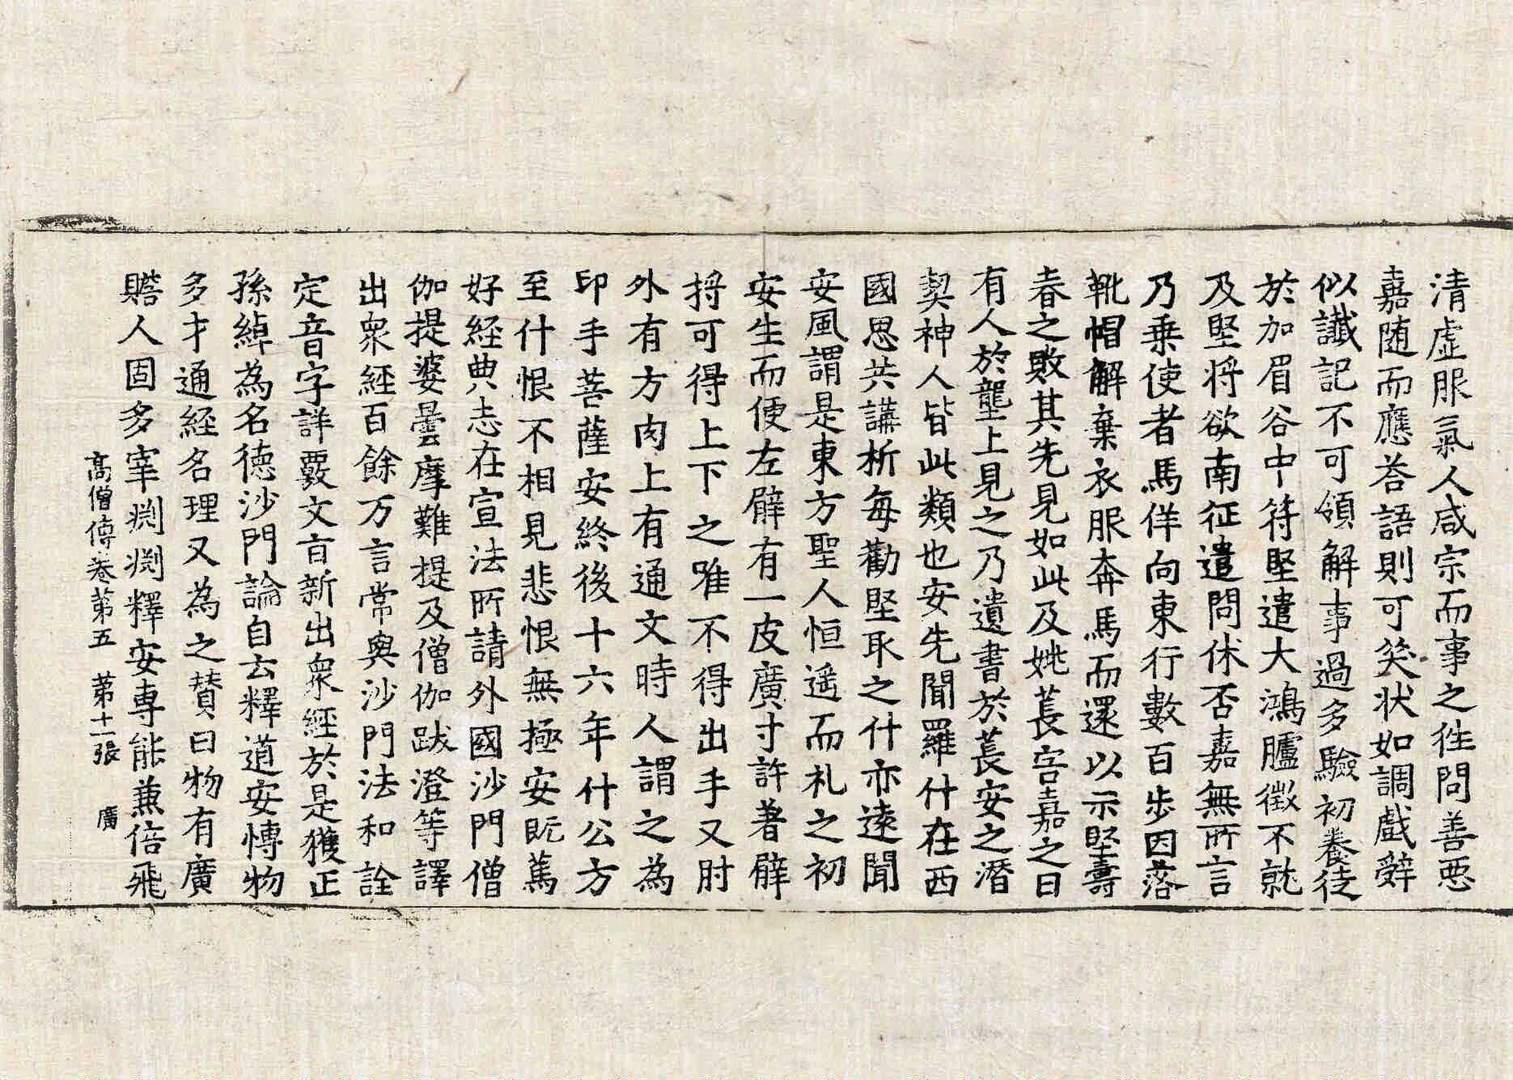 清虛服氣人咸宗而事之徃問善惡
嘉随而應荅語則可笑状如調戲辤
似讖記不可領解事過多驗初養徒
於加眉谷中苻堅遣大鴻臚徵不就
及堅将欲南征遣問休否嘉無所言
乃乗使者馬佯向東行數百步因落
靴帽解棄衣服奔馬而還以示堅壽
春之敗其先見如此及姚萇害嘉之日
有人於壟上見之乃遺書於萇安之潛
契神人皆此類也安先聞羅什在西
國思共講析每勸堅取之什亦逺聞
安風謂是東方聖人恒遥而礼之初
安生而便左臂有一皮廣寸許著臂
捋可得上下之唯不得出手又肘
外有方肉上有通文時人謂之為
印手菩薩安終後十六年什公方
至什恨不相見悲恨無極安旣篤
好經典志在宣法所請外國沙門僧
伽提婆曇摩難提及僧伽跋澄等譯
出衆經百餘万言常與沙門法和詮
定音字詳覈文旨新出衆經於是獲正
孫綽為名德沙門論自云釋道安愽物
多才通經名理又為之賛曰物有廣
贍人固多宰渕渕釋安專能兼倍飛
高僧傳卷第五 第十一張 廣